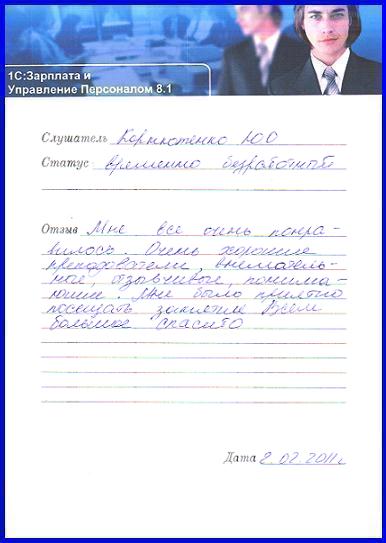 1С:Зарплата и
Управление Персоналом 8.1
Слушатель Ю О
Статус временно безработный
Отзыв Мне все очень понра-
вилось. Очень хорошие
преподователи, внематель-
ные, отзывчивые, понима-
ющие. Мне было приятно
посещать занятие Всем
большое спасибо
Дата 8.02.2011г